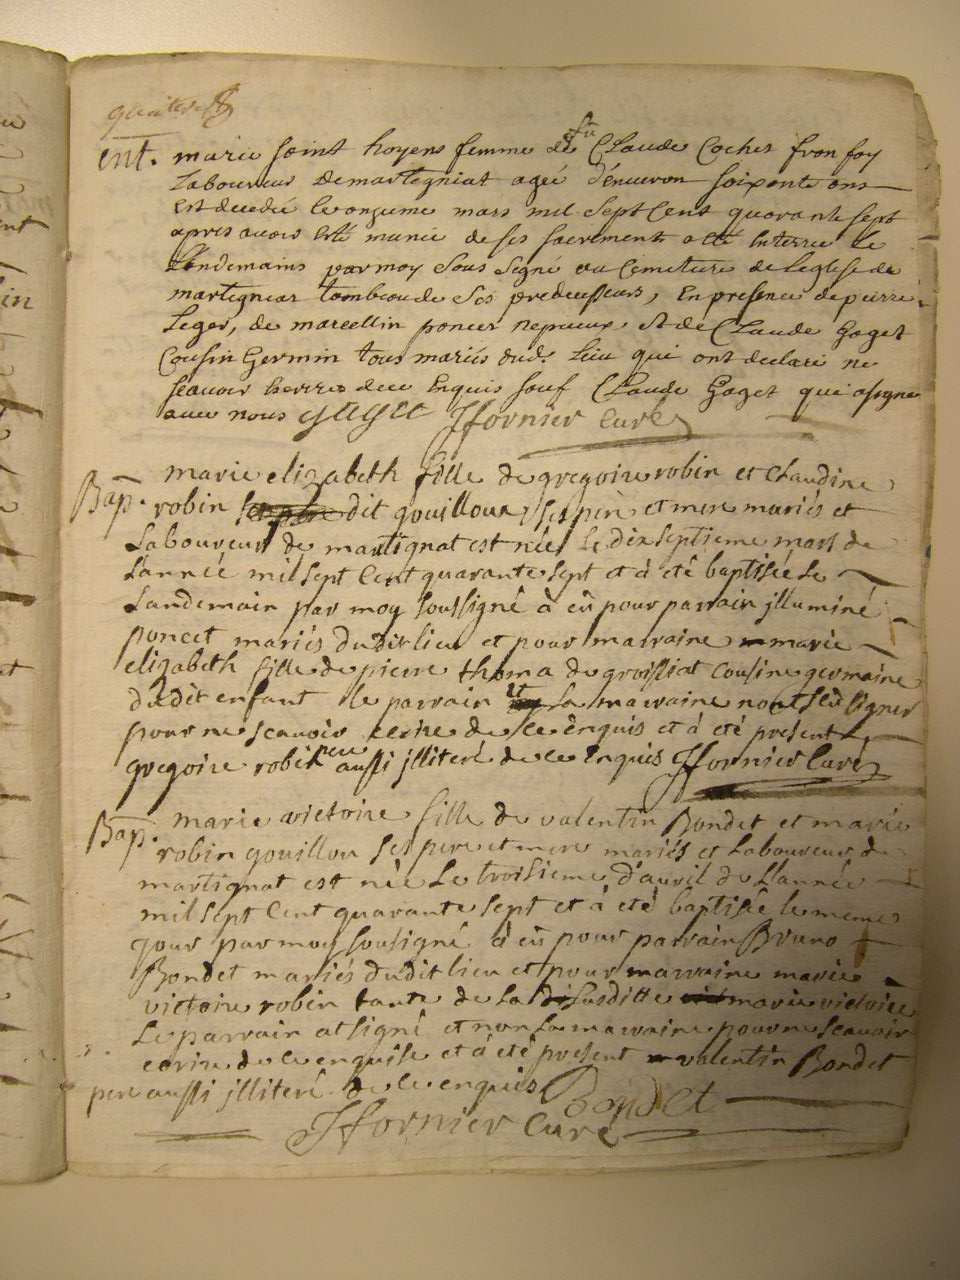 ent. marie saint hoyens femme de fû Claude Coches fron foy
Laboureur de martegniat agée d'enuiron soixente ans
est decedée le onzieme mars mil sept cens quarante sept
apres auoir esté munie de ses sacrements a été enterrée le
Lendemains par moy sous signé au cemetiere de leglise de
martegniat tombeau de ses predecesseurs, en presence de pierre
Leger, de marcellin poncet nepueux et de Claude Goget
Cousin Germin tous mariés dud. lieu qui ont declaré ne
seauoir de ce enquis sauf Claude Goget qui a signé
auec nous Goget JForNier Curé
Bap. marie elizabeth fille de gregoire robin et claudine
robin dit gouilloux ses pere et mere mariés et
Laboureurs de martignat est née le dix septieme mars de
L'année mil sept cent quarante sept et à été baptisée le
Landemain par moy soussigné à eû pour parrain illuminé
poncet mariés dudit lieu et pour marraine marie
elizabeth fille de pierre thoma de groissiat cousine germaine
dudit enfant le parrain et La marraine n'ont sçû signer
pour ne scauoir ecrire de ce enquis et à été present
gregoire robin pere aussi jlliteré de ce enquis JForNier Curé
Bap. marie victoire fille de valentin Bondet et marie
robin gouillou ses pere et mere mariés et Laboureurs de
martignat est née Le troisieme d'auril de L'année
mil sept Cent quarante sept et à été baptisée le meme
jour par moy soussigné à eû pour parrain Bruno
Bondet mariés dudit lieu et pour marraine marie
victoire robin tante de la susditte marie victoire
Le parrain at signé et non La marraine pour ne scauoir
ecrire de ce enquise et à été present valentin Bondet
pere aussi jlliteré de ce enquis Bondet
JForNier Curé